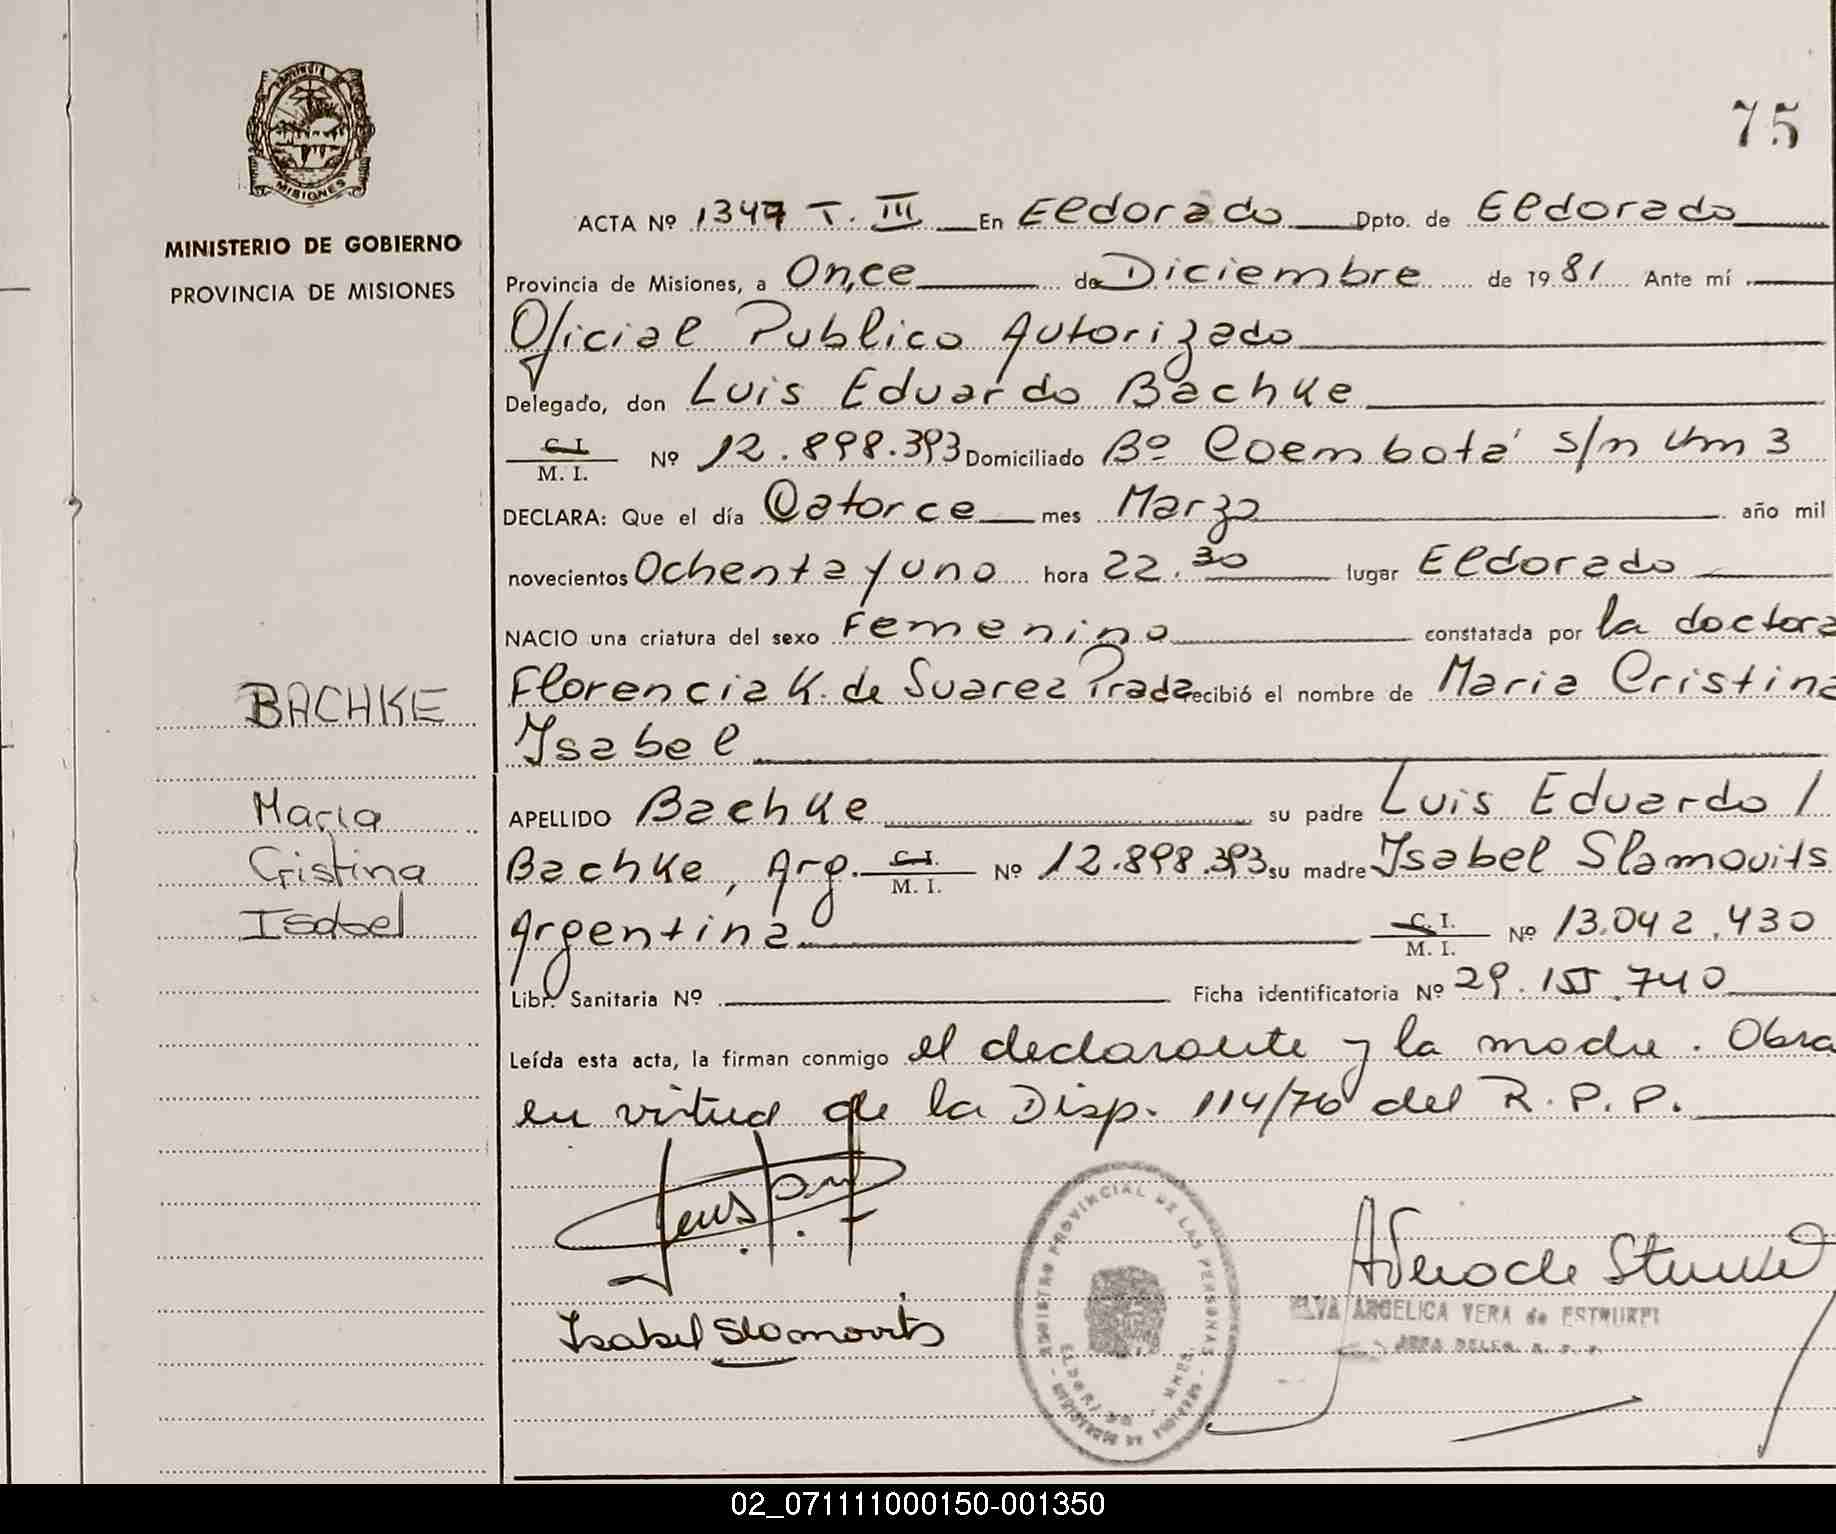 75
MISIONES
MINISTERIO DE GOBIERNO
PROVINCIA DE MISIONES
ACTA Nº 1347 T. III En Eldorado Dpto. de Eldorado
Provincia de Misiones, a Once de Diciembre de 1981 Ante mí
Oficial Publico Autorizado
Delegado, don Luis Eduardo Bachke
C. I. / M. I. Nº 12.898.393 Domiciliado Bº Coembotá s/n Km 3
DECLARA: Que el día Catorce mes Marzo año mil
novecientos Ochenta y uno hora 22.30 lugar Eldorado
NACIO una criatura del sexo Femenino constatada por la doctora
Florencia K. de Suarez Prada recibió el nombre de Maria Cristina
Isabel
BACHKE
Maria
Cristina
Isabel
APELLIDO Bachke su padre Luis Eduardo /
Bachke, Arg. C. I. / M. I. Nº 12.898.393 su madre Isabel Slamovits
Argentina C. I. / M. I. Nº 13.042.430
Libr. Sanitaria Nº Ficha identificatoria Nº 29.155.740
Leída esta acta, la firman conmigo el declarante y la madre. Obra
en virtud de la Disp. 114/76 del R. P. P.
Isabel Slamovits
REGISTRO PROVINCIAL DE LAS PERSONAS
ELDORADO
ELVA ANGELICA VERA de ESTWURFI
02_071111000150-001350